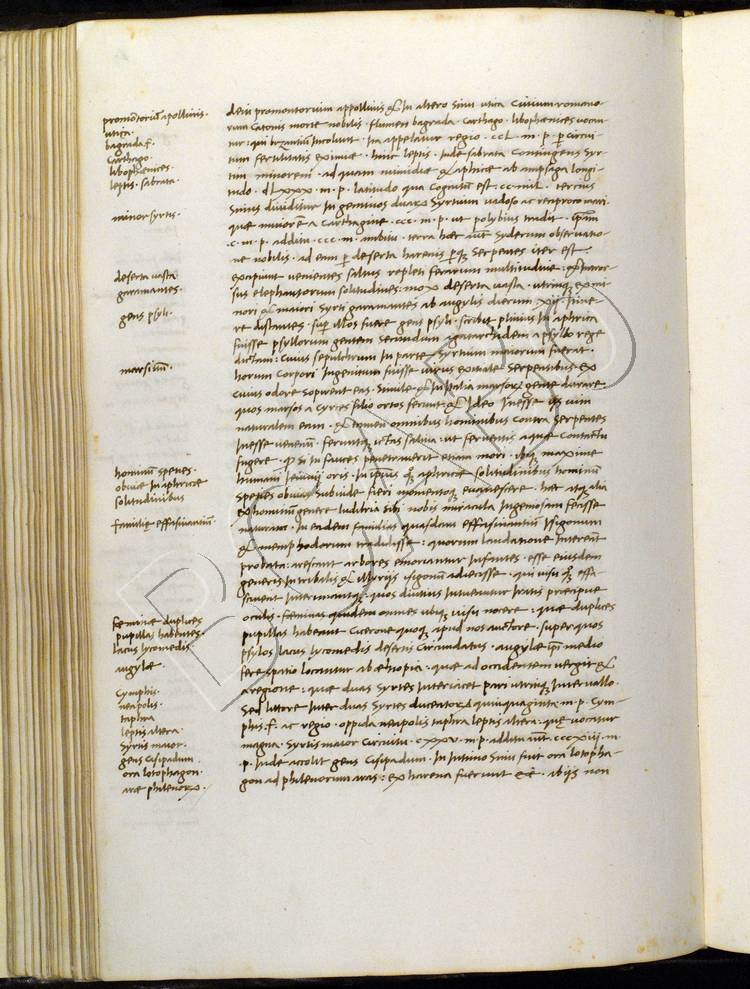 promōtoriū apollinis.
utica.
bagrada f.
Carthago.
libophœnices.
leptis. sabrata.
minor syrtis.
deserta vasta.
garamantes.
gens psyli.
marsi
hominum species.
obuiæ in aphricæ
solitudinibus
familię effasinantium.
Feminæ duplices
pupillas habentes.
lacus lycomedis
augylæ.
Cymphis.
neapolis.
taphra
leptis altera.
Syrtis maior.
gens Cisipadum.
ora lotophagon.
aræ philenorꝝ.
dein promontorium appollinis & In altero sinu utica Ciuium romano-
rum Catonis morte nobilis. flumen bagrada. Carthago. libophœnices uocan
tur: qui byzantium Incolunt. Ita appelatur regio. ccl. m. p. p circui-
tum fertilitatis eximiæ. hinc leptis. Inde sabrata Contingens Syr-
tim minorem. ad quam numidiæ & aphricæ ab ampsaga longi-
tudo. dLxxx. m. p. latitudo qua Cognitum est. cc. mil. tertius
Sinus diuiditur In geminos duarꝝ Syrtium uadoso ac reciproco mari.
quæ minorē a Carthagine. ccc. m. p. ut polybius tradit.
c. m. p. aditu. ccc. m. ambitu. terra hæc Syderum obseruatio-
ne nobilis. ad eam p deserta harenis pq Serpentes iter est.
excipiunt uenientes saltus repleti ferarum multitudine: & Intror-
sus elephantorum solitudines: mox deserta uasta. utrinqꝫ
nori & maiori Syrti garamantes ab augylis dierum. xij. Itine
re distantes. sup Illos fuere gens psyli. scribit plinius In aphrica
fuisse psyllorum gentem Secundum agatarchidem a psyllo rege
dictam: Cuius sepulchrum In parte Syrtium maiorum fuerat.
horum Corpori Ingenitum fuisse uirus exitiale Serpentibus. Ex
Cuius odore sopirent eas. Simile & In Italia marsorꝝ gente durare
quos marsos a Cyrces filio ortos ferunt: & Ideo Inesse
naturalem eam. & tamen omnibus hominibus contra Serpentes
Inesse uenenū. feruntqꝫ Ictas saliua. ut feruentis aquæ Contactū
fugere. Si In fauces penetrauerit etiam mori. Idqꝫ maxime
humani Ieiunij oris. In ipsius aphricæ solitudinibus hominū
Species obuiæ Subinde fieri momentoqꝫ euanescere. hæc atqꝫ alia
ex hominum genere ludibria Sibi nobis miracula Ingeniosam fecisse
naturam. In eadem familias quasdam effasinantium Isigonum
& memphodorum tradidisse: quorum laudatione Intereant
probata: arescant arbores emoriantur Infantes. esse eiusdem
generis In tribalis & illyrijs isigonus adiecisse. qui uisu effa-
scinent Interimantqꝫ: quos diutius Intueantur Iratis præcipue
oculis. feminas quidem omnes ubiqꝫ uisu nocere. quæ duplices
pupillas habeant Cicerone quoqꝫ apud nos auctore. super quos
psylos lacus lycomedis desertis Circundatus. augylæ ipsi medio
fere spatio locantur ab æthiopia. quæ ad occidentem uergit &
a regione: quæ duas Syrtes Interiacet pari utrinqꝫ Interuallo.
Sed littore Inter duas Syrtes ducentorꝝ quinquaginta m. p. Cym-
phis. f. ac regio. oppida neapolis taphra leptis altera: quę uocatur
magna. Syrtis maior Circuitu. cxxv. m. p. additu cccxiij. m.
p. Inde accolit gens Cisipadum. In Intimo Sinu fuit ora lotopha-
gon ad philenorum aras: Ex harena fuerunt eæ. abijs non